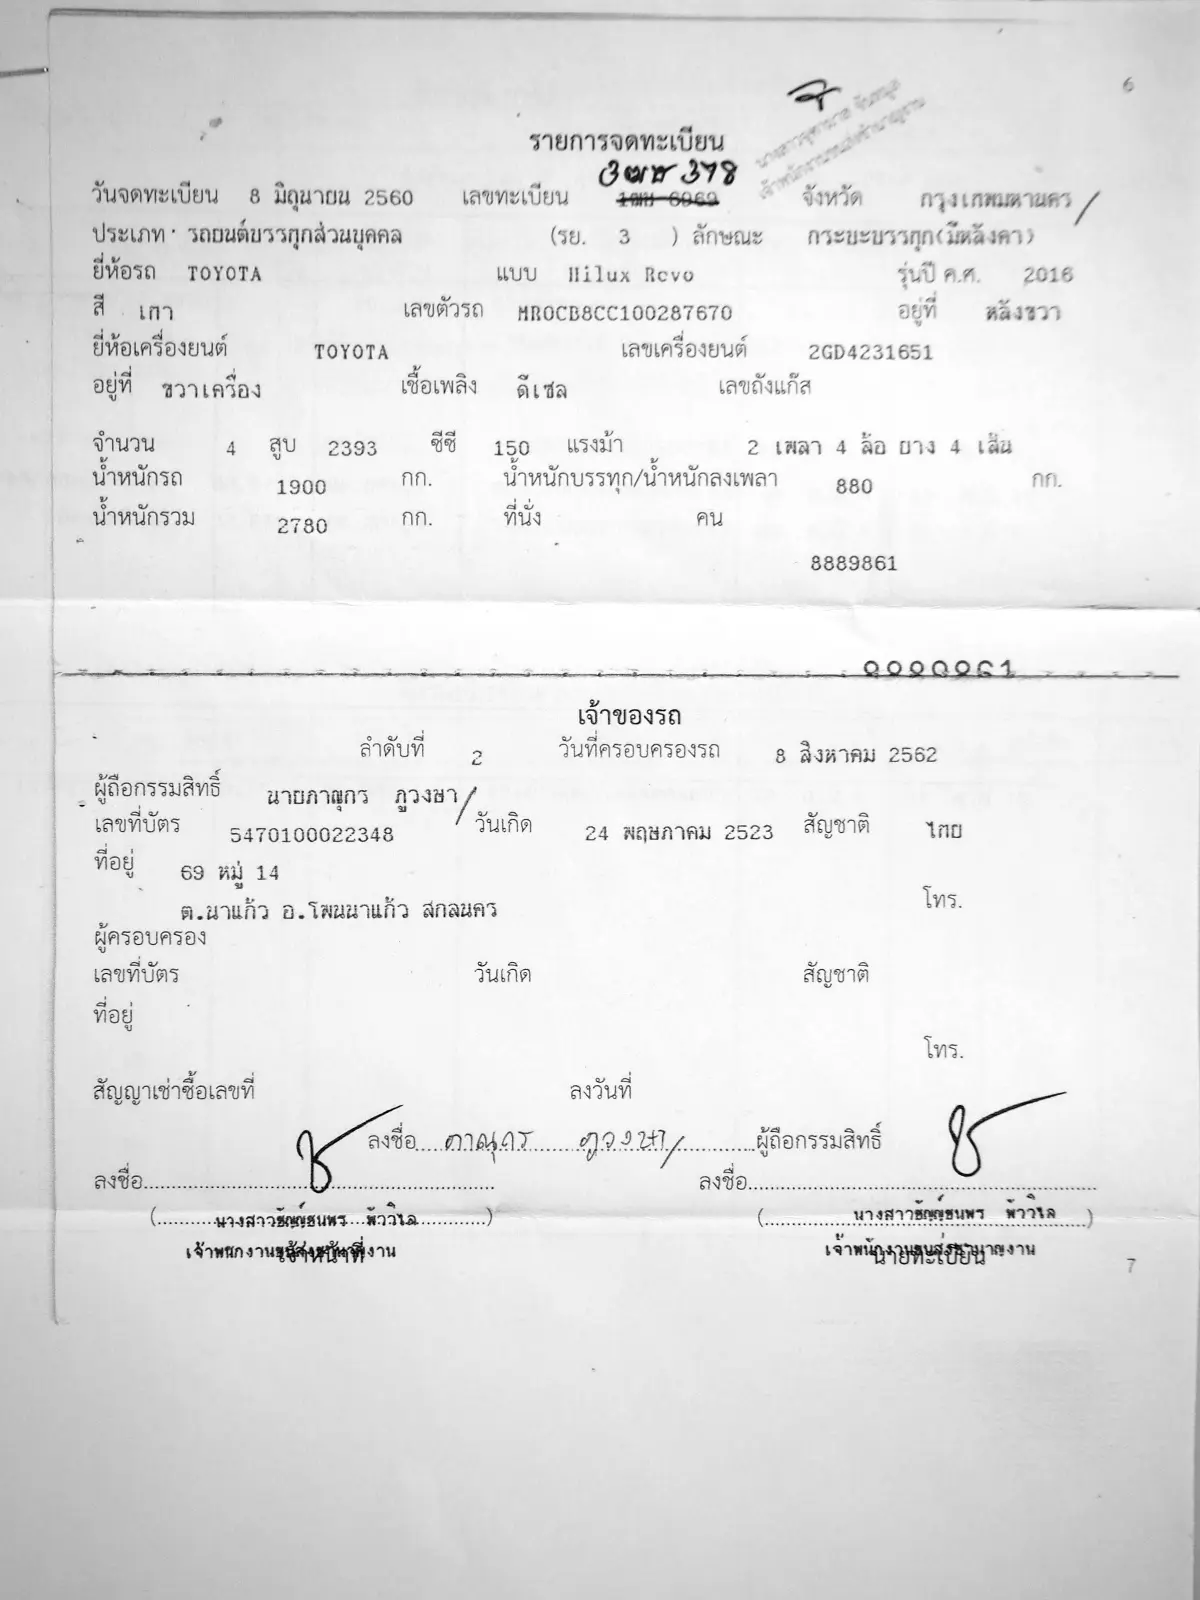 6
รายการจดทะเบียน
3ฒฆ 378
วันจดทะเบียน 8 มิถุนายน 2560 เลขทะเบียน 1ฒฆ 6969 จังหวัด กรุงเทพมหานคร /
ประเภท รถยนต์บรรทุกส่วนบุคคล (รย. 3 ) ลักษณะ กระบะบรรทุก(มีหลังคา)
ยี่ห้อรถ TOYOTA แบบ Hilux Revo รุ่นปี ค.ศ. 2016
สี เทา เลขตัวรถ MR0CB8CC100287670 อยู่ที่ หลังขวา
ยี่ห้อเครื่องยนต์ TOYOTA เลขเครื่องยนต์ 2GD4231651
อยู่ที่ ขวาเครื่อง เชื้อเพลิง ดีเซล เลขถังแก๊ส
จำนวน 4 สูบ 2393 ซีซี 150 แรงม้า 2 เพลา 4 ล้อ ยาง 4 เส้น
น้ำหนักรถ 1900 กก. น้ำหนักบรรทุก/น้ำหนักลงเพลา 880 กก.
น้ำหนักรวม 2780 กก. ที่นั่ง คน
8889861
เจ้าของรถ
ลำดับที่ 2 วันที่ครอบครองรถ 8 สิงหาคม 2562
ผู้ถือกรรมสิทธิ์ นายภาณุกร ภูวงษา /
เลขที่บัตร 5470100022348 วันเกิด 24 พฤษภาคม 2523 สัญชาติ ไทย
ที่อยู่ 69 หมู่ 14
ต.นาแก้ว อ.โพนนาแก้ว สกลนคร โทร.
ผู้ครอบครอง
เลขที่บัตร วันเกิด สัญชาติ
ที่อยู่
โทร.
สัญญาเช่าซื้อเลขที่ ลงวันที่
ลงชื่อ ภาณุกร ภูวงษา / ผู้ถือกรรมสิทธิ์
ลงชื่อ ลงชื่อ
(นางสาวธัญญ์ธนพร พัววิไล) (นางสาวธัญญ์ธนพร พัววิไล)
เจ้าพนักงานขนส่งชำนาญงาน เจ้าพนักงานขนส่งชำนาญงาน
เจ้าหน้าที่ นายทะเบียน
7